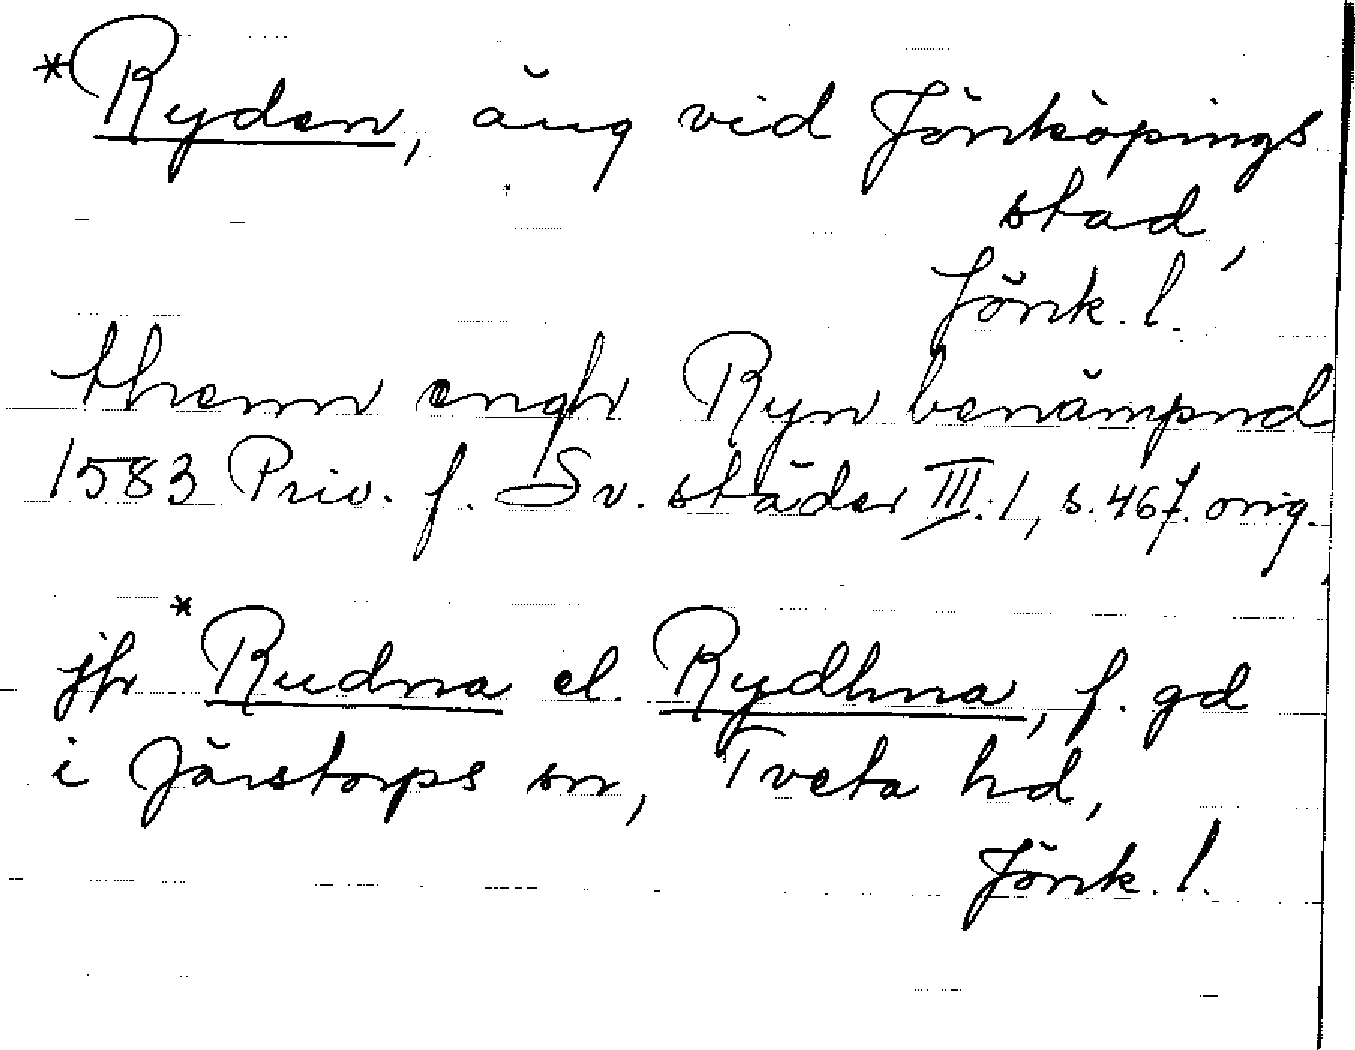 *Ryden, äng vid Jönköpings
stad,
Jönk. l.
thenn engh Ryn benämpnd
1583 Priv. f. Sv. städer III:1, s. 467. orig.
jfr *Rudna el. Rydhna, f. gd
i Järstorps sn, Tveta hd,
Jönk. l.